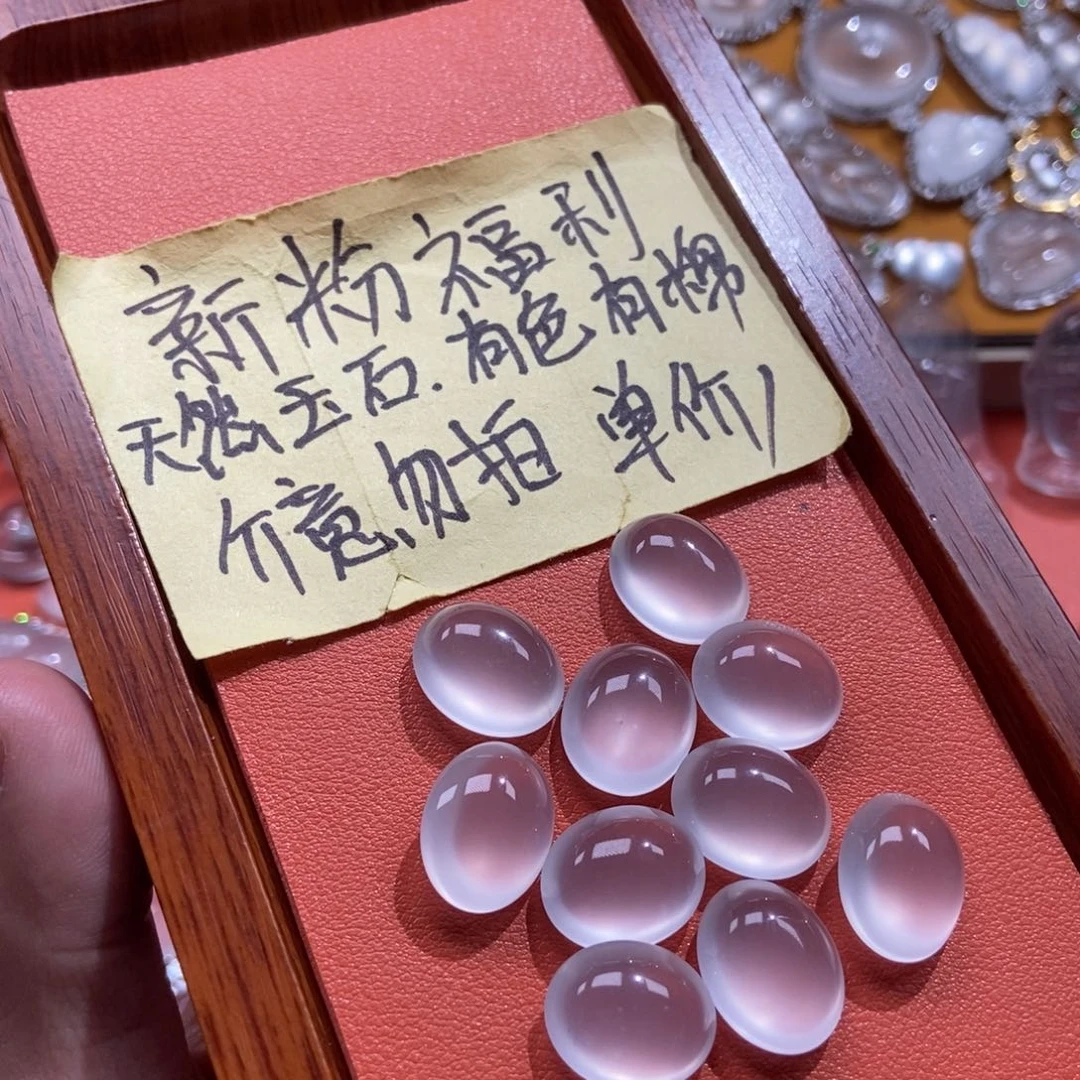 新粉福利
天然玉石.有色有棉
介意、勿拍 单价/